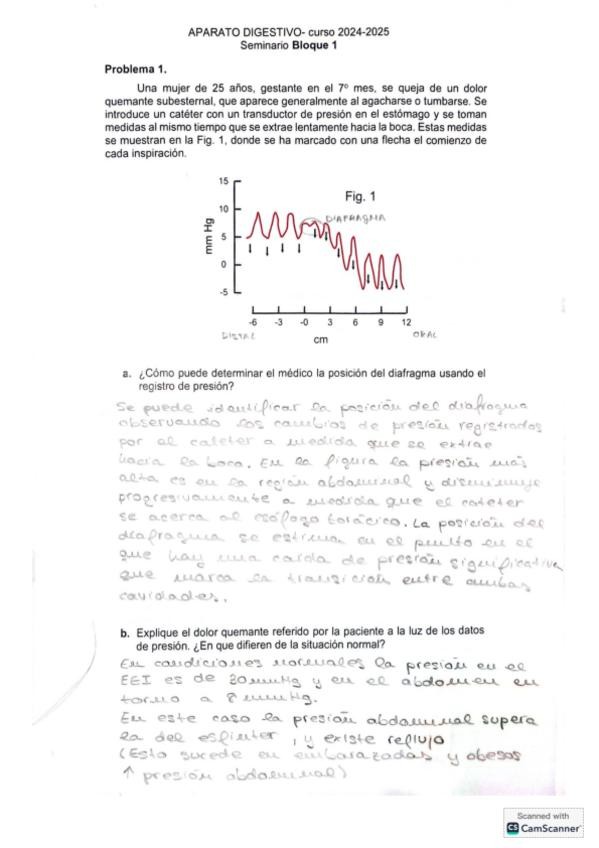 APARATO DIGESTIVO- curso 2024-2025
Seminario Bloque 1
Problema 1.
Una mujer de 25 años, gestante en el 7º mes, se queja de un dolor
quemante subesternal, que aparece generalmente al agacharse o tumbarse. Se
introduce un catéter con un transductor de presión en el estómago y se toman
medidas al mismo tiempo que se extrae lentamente hacia la boca. Estas medidas
se muestran en la Fig. 1, donde se ha marcado con una flecha el comienzo de
cada inspiración.
Fig. 1
DIAFRAGMA
mm Hg
15
10
5
0
-5
-6 -3 -0 3 6 9 12
DISTAL cm ORAL
a. ¿Cómo puede determinar el médico la posición del diafragma usando el
registro de presión?
Se puede identificar la posición del diafragma
observando los cambios de presión registrados
por el catéter a medida que se extrae
hacia la boca. En la figura la presión más
alta es en la región abdominal y disminuye
progresivamente a medida que el catéter
se acerca al esófago torácico. La posición del
diafragma se estima en el punto en el
que hay una caída de presión significativa
que marca la transición entre ambas
cavidades.
b. Explique el dolor quemante referido por la paciente a la luz de los datos
de presión. ¿En que difieren de la situación normal?
En condiciones normales la presión en el
EEI es de 20mmHg y en el abdomen en
torno a 8 mmHg.
En este caso la presión abdominal supera
la del esfínter, y existe reflujo
(Esto sucede en embarazadas y obesos
↑ presión abdominal)
Scanned with
CS CamScanner